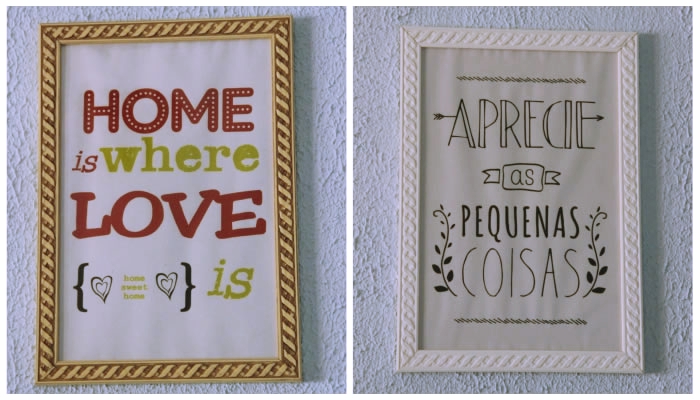 HOME
is where
LOVE
{ home } is
sweet
home
APRECIE
as
PEQUENAS
COISAS